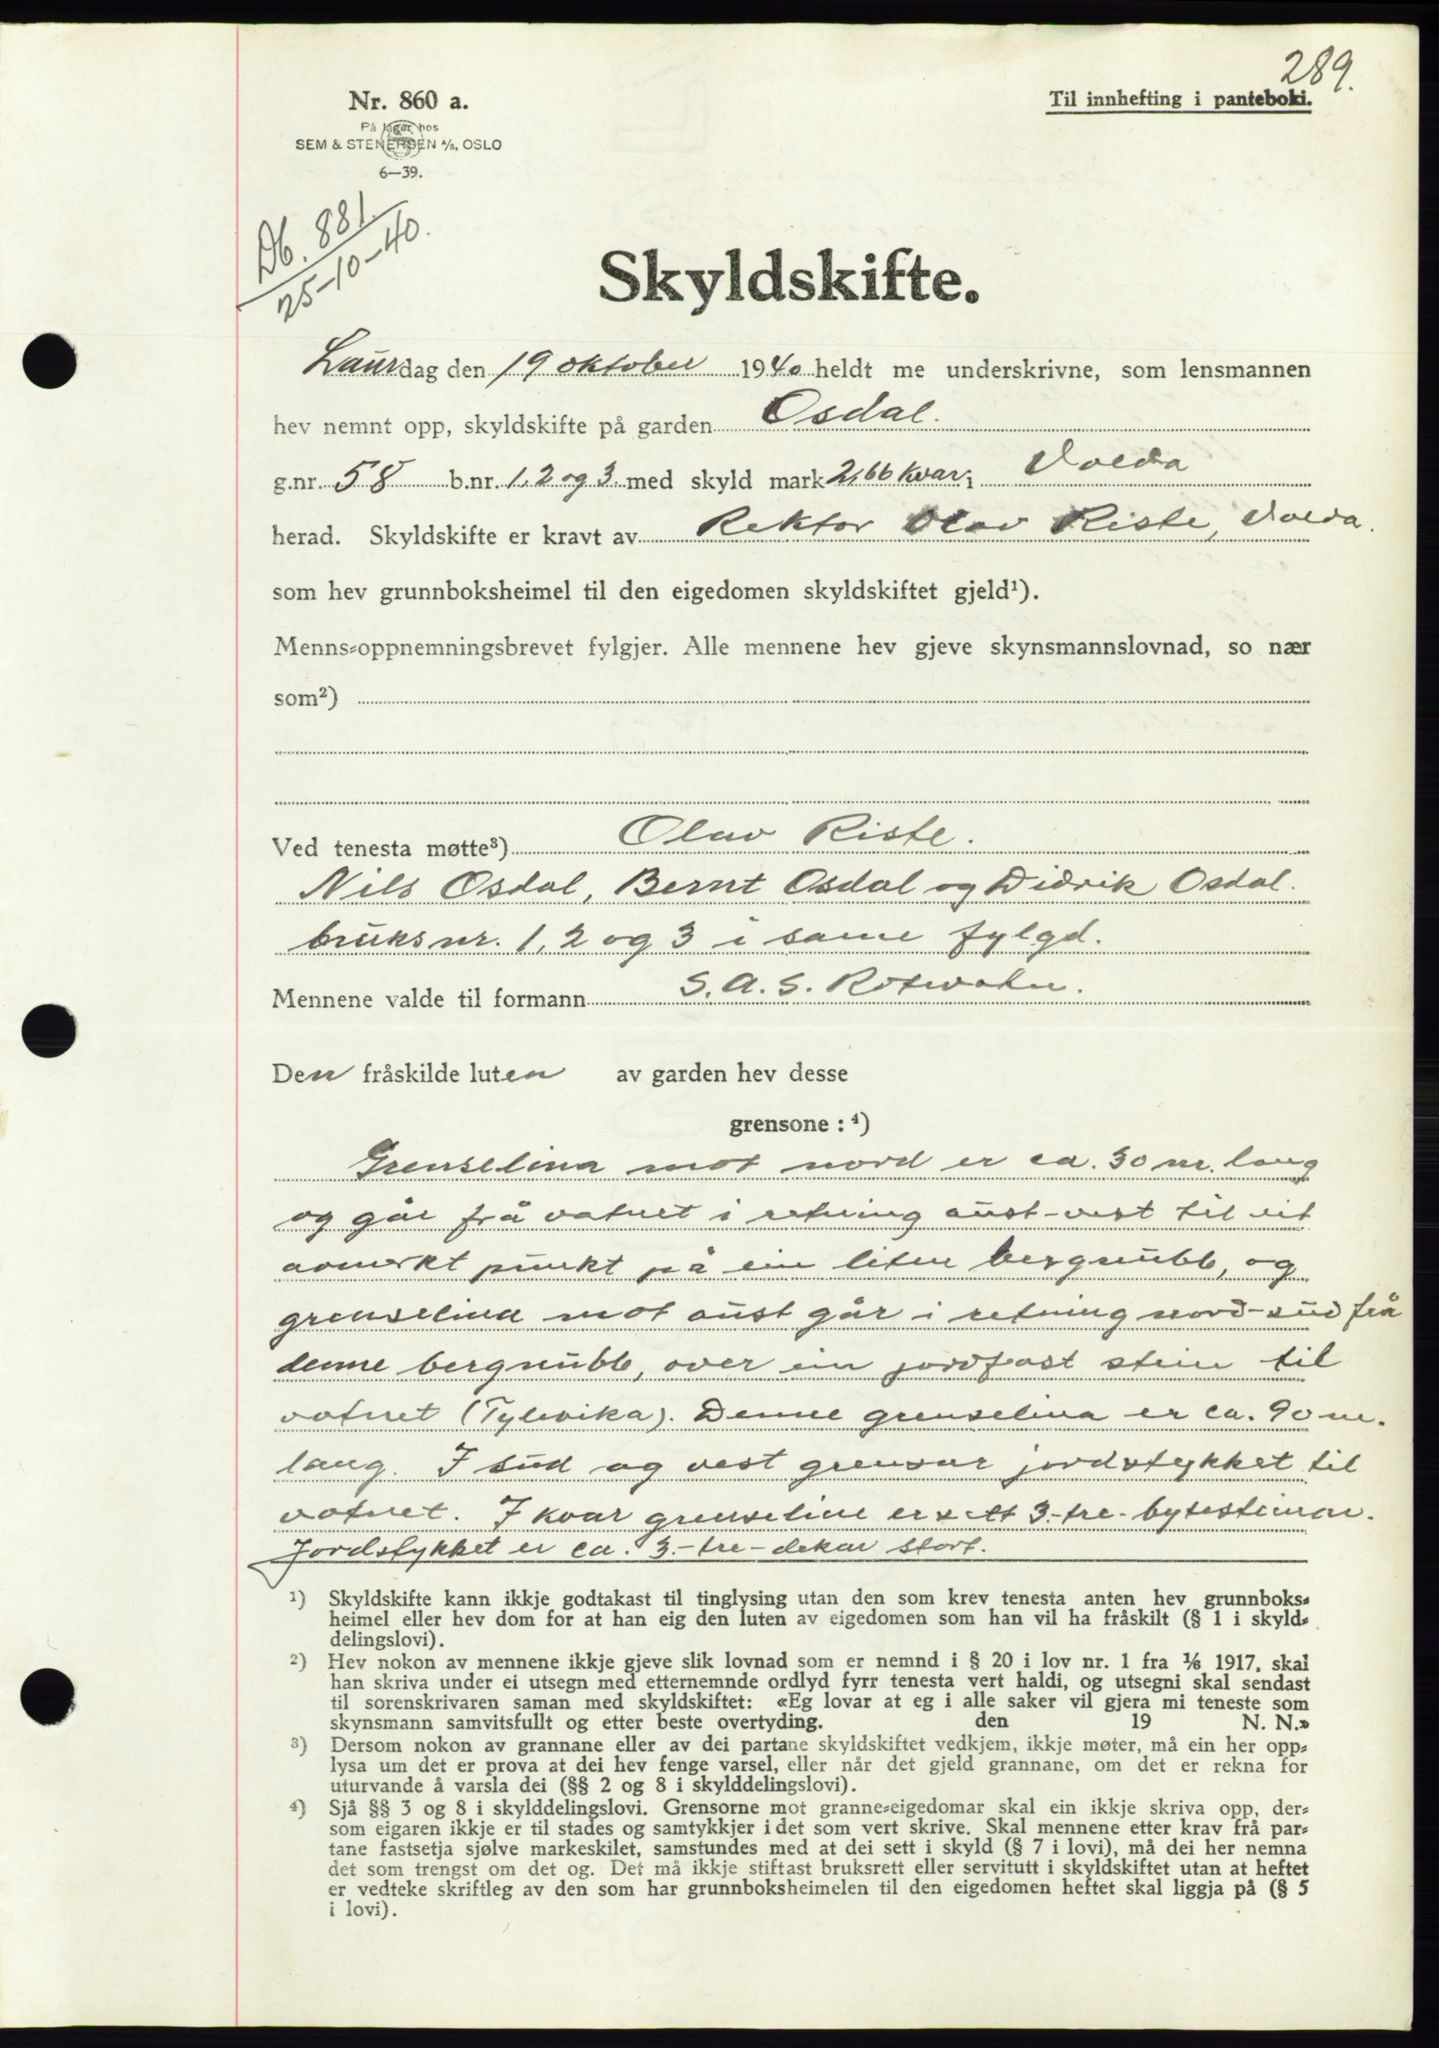 289.
Nr. 860 a.
Til innhefting i panteboki.
På lager hos
SEM & STENERSEN A/S, OSLO
6—39.
Db. 881.
25-10-40.
Skyldskifte.
Laurdag den 19 oktober 1940 heldt me underskrivne, som lensmannen
hev nemnt opp, skyldskifte på garden Osdal.
g.nr. 58 b.nr. 1, 2 og 3 med skyld mark 2,66 kvar i Volda
herad. Skyldskifte er kravt av Rektor Olav Riste, Volda.
som hev grunnboksheimel til den eigedomen skyldskiftet gjeld¹).
Menns-oppnemningsbrevet fylgjer. Alle mennene hev gjeve skynsmannslovnad, so nær
som²)
Ved tenesta møtte³) Olav Riste.
Nils Osdal, Bernt Osdal og Didrik Osdal.
bruksnr. 1, 2 og 3 i same fylgd.
Mennene valde til formann S. A. S. Rotevatn.
Den fråskilde luten av garden hev desse
grensone : ⁴)
Grenselina mot nord er ca. 30 m. lang
og går frå vatnet i retning aust-vest til eit
avmerkt punkt på ein liten bergnubb, og
grenselina mot aust går i retning nord-sud frå
denne bergnubb, over ein jordfast stein til
vatnet (Tylevika). Denne grenselina er ca. 90 m.
lang. I sud og vest grensar jordstykket til
vatnet. I kvar grenseline er sett 3.-tre- bytesteinar.
Jordstykket er ca. 3.-tre-dekar stort.
¹) Skyldskifte kann ikkje godtakast til tinglysing utan den som krev tenesta anten hev grunnboks-
heimel eller hev dom for at han eig den luten av eigedomen som han vil ha fråskilt (§ 1 i skyld-
delingslovi).
²) Hev nokon av mennene ikkje gjeve slik lovnad som er nemnd i § 20 i lov nr. 1 fra 1/6 1917, skal
han skriva under ei utsegn med etternemnde ordlyd fyrr tenesta vert haldi, og utsegni skal sendast
til sorenskrivaren saman med skyldskiftet: «Eg lovar at eg i alle saker vil gjera mi teneste som
skynsmann samvitsfullt og etter beste overtyding. den 19 N. N.»
³) Dersom nokon av grannane eller av dei partane skyldskiftet vedkjem, ikkje møter, må ein her opp-
lysa um det er prova at dei hev fenge varsel, eller når det gjeld grannane, om det er rekna for
uturvande å varsla dei (§§ 2 og 8 i skylddelingslovi).
⁴) Sjå §§ 3 og 8 i skylddelingslovi. Grensorne mot granne-eigedomar skal ein ikkje skriva opp, der-
som eigaren ikkje er til stades og samtykkjer i det som vert skrive. Skal mennene etter krav frå par-
tane fastsetja sjølve markeskilet, samstundes med at dei sett i skyld (§ 7 i lovi), må dei her nemna
det som trengst om det og. Det må ikkje stiftast bruksrett eller servitutt i skyldskiftet utan at heftet
er vedteke skriftleg av den som har grunnboksheimelen til den eigedomen heftet skal liggja på (§ 5
i lovi).